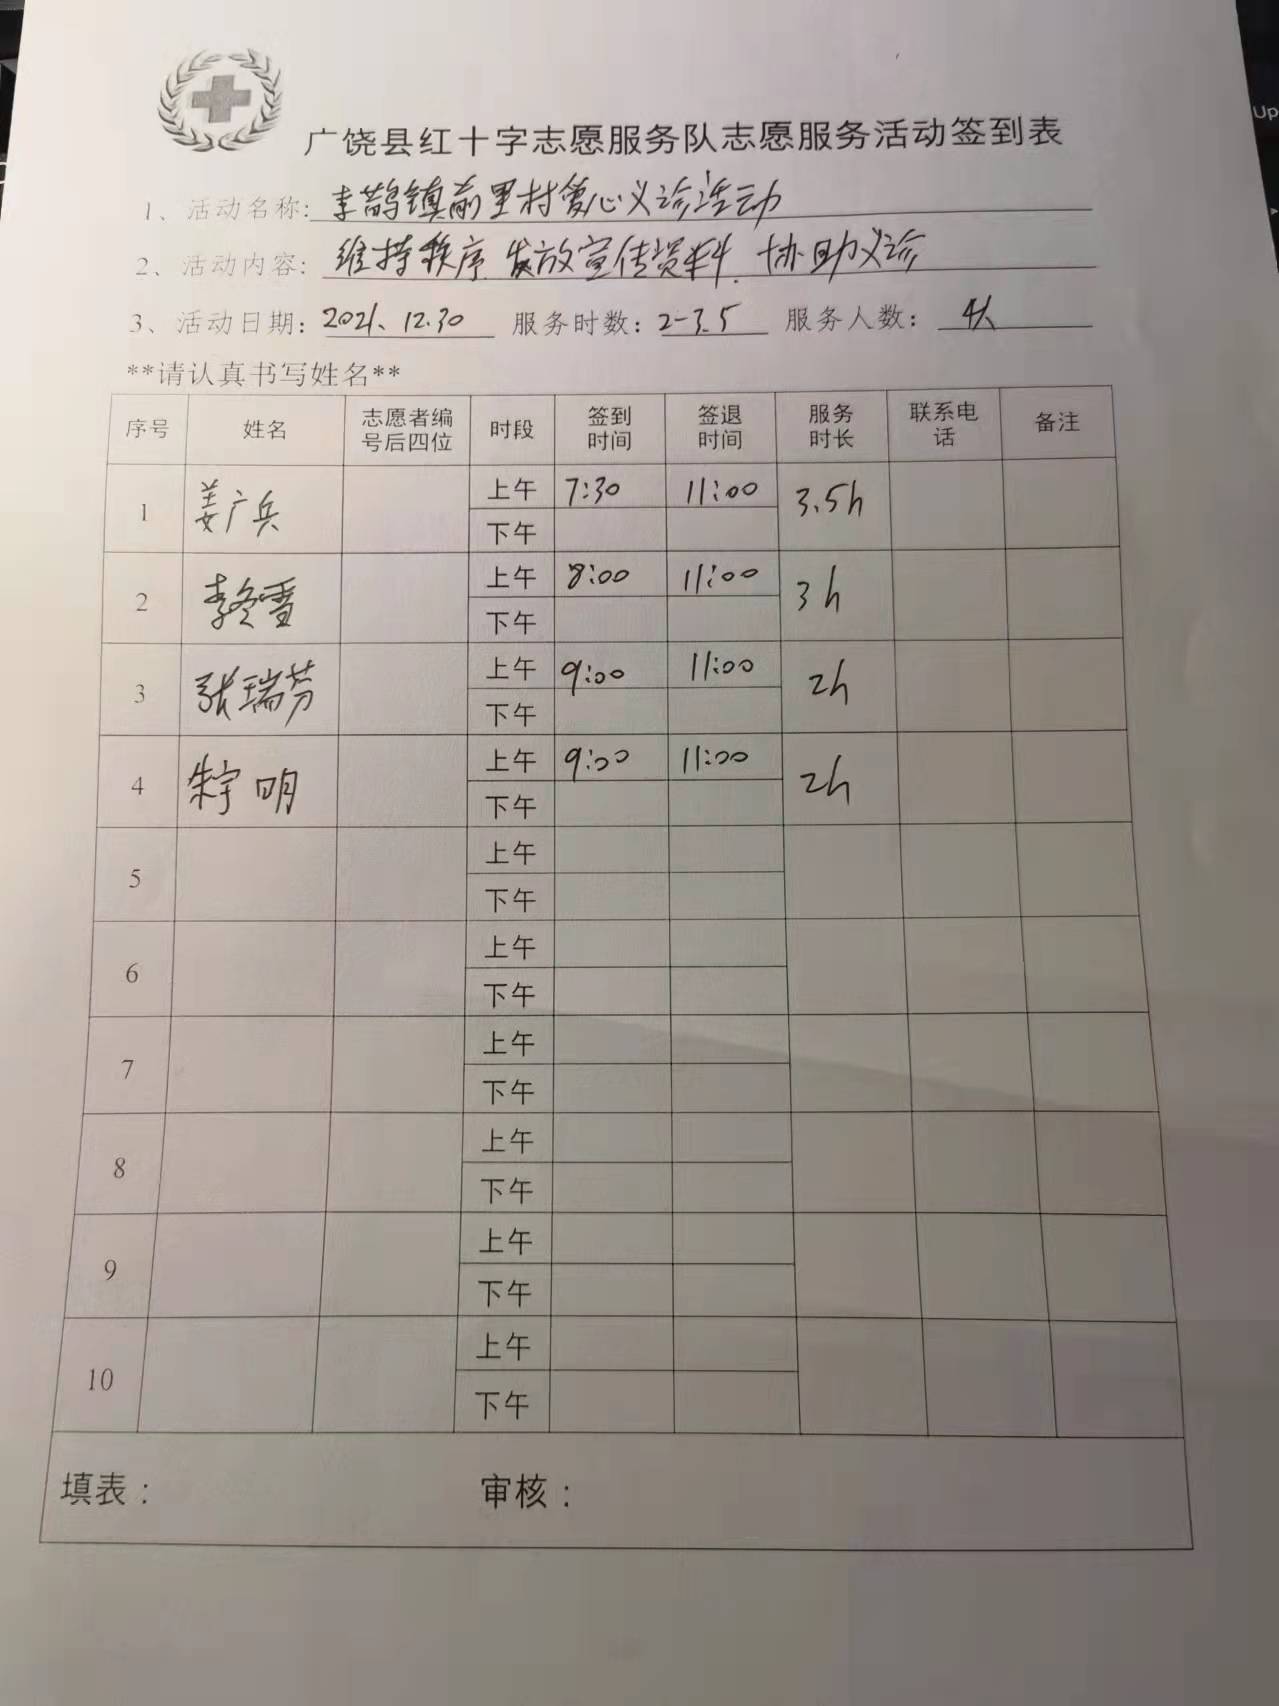 广饶县红十字志愿服务队志愿服务活动签到表
1、活动名称:李鹊镇前里村爱心义诊活动
2、活动内容:维持秩序.发放宣传资料.协助义诊
3、活动日期:2021.12.30 服务时数:2-3.5 服务人数:4人
**请认真书写姓名**
序号 姓名 志愿者编号后四位 时段 签到时间 签退时间 服务时长 联系电话 备注
1 姜广兵 上午 7:30 11:00 3.5h
下午
2 李冬雪 上午 8:00 11:00 3h
下午
3 张瑞芳 上午 9:00 11:00 2h
下午
4 朱宇明 上午 9:00 11:00 2h
下午
5 上午
下午
6 上午
下午
7 上午
下午
8 上午
下午
9 上午
下午
10 上午
下午
填表: 审核:
Up